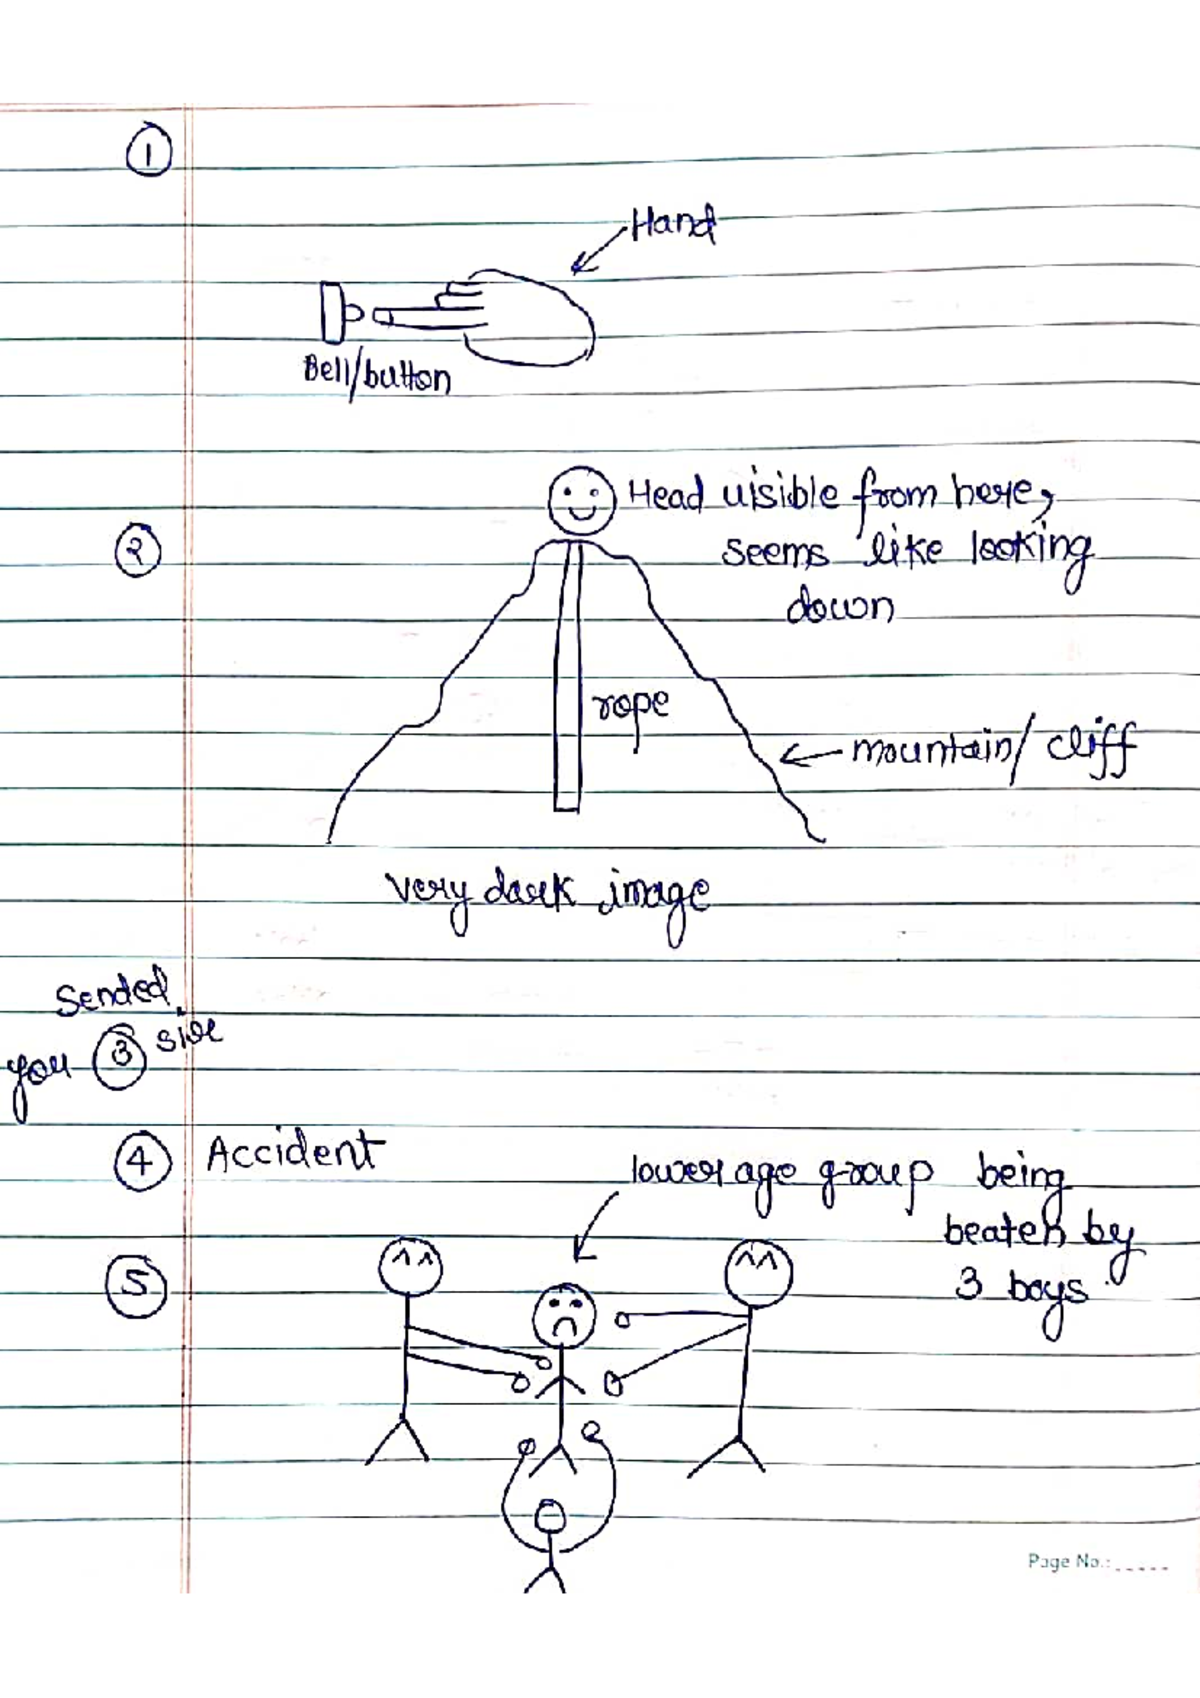 1
Hand
Bell/button
2
Head visible from here,
seems like looking
down
rope
mountain/ cliff
very dark image
Sended
you 3 sir
4 Accident
lower age group being
beaten by
3 boys.
5
Page No.: